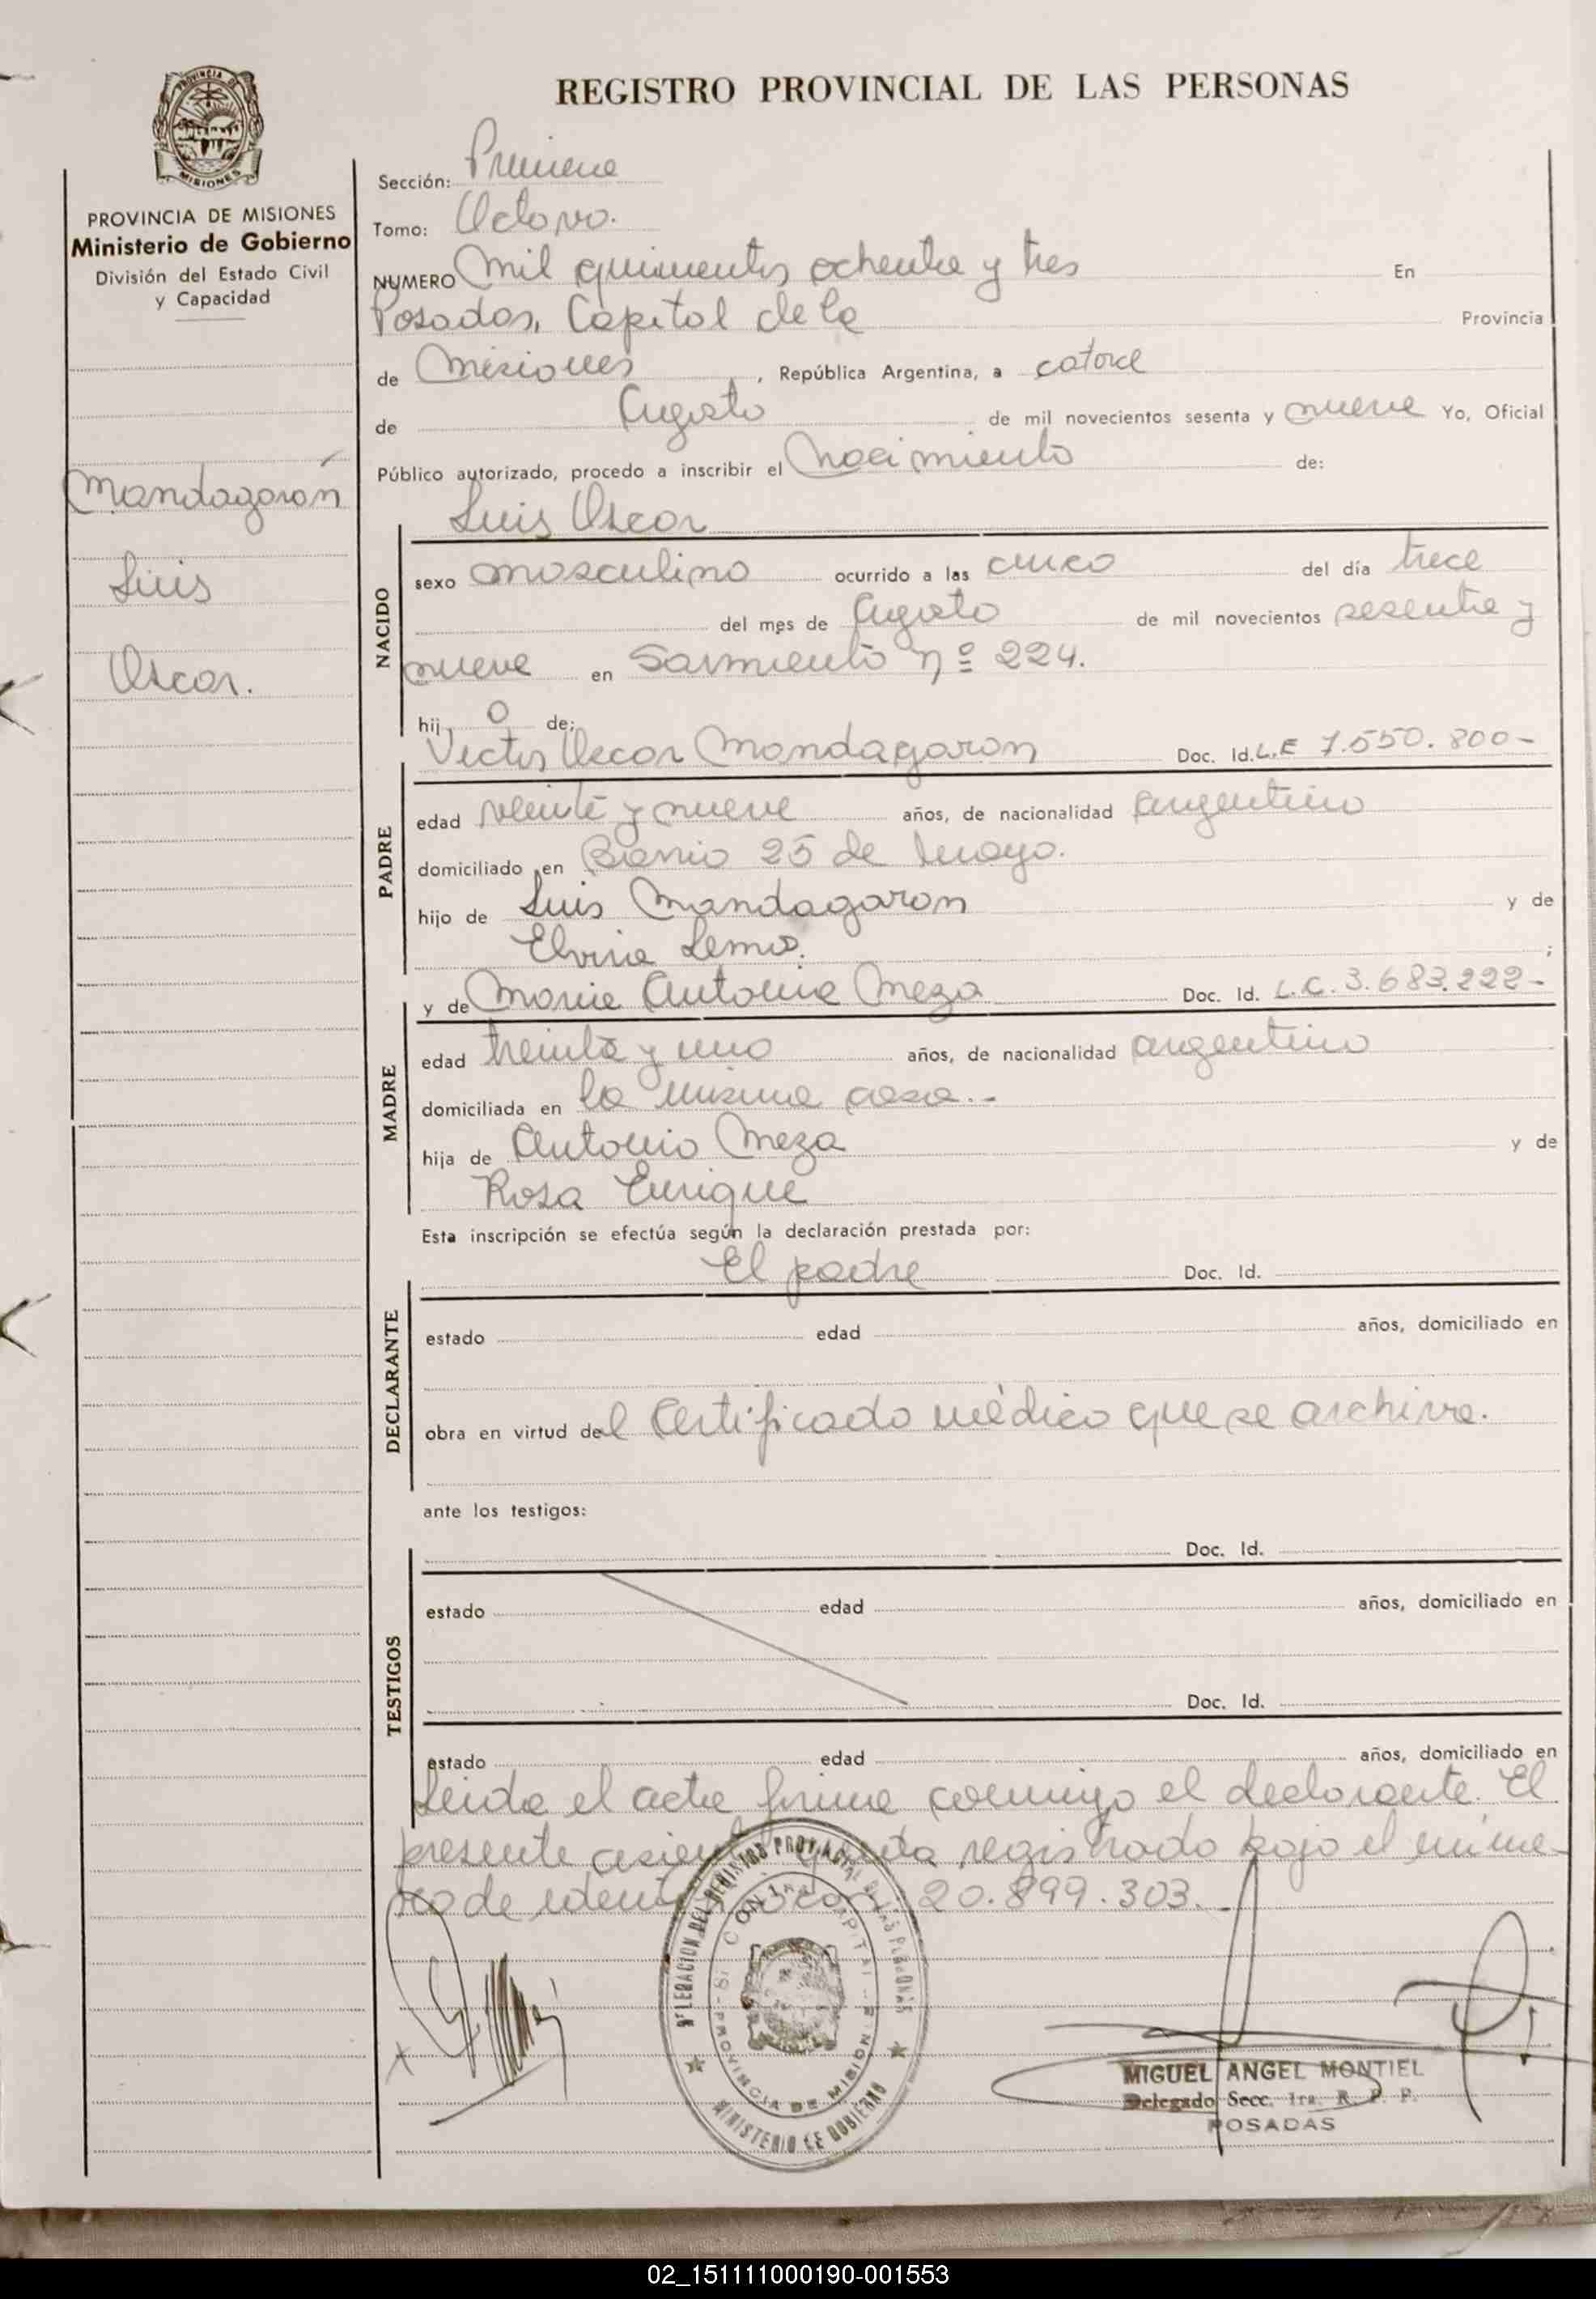 REGISTRO PROVINCIAL DE LAS PERSONAS
MISIONES
PROVINCIA DE MISIONES
Ministerio de Gobierno
División del Estado Civil
y Capacidad
Mandagarán
Luis
Oscar.
Sección: Primera
Tomo: Octavo.
NUMERO Mil quinientos ochenta y tres En
Posadas, Capital de la Provincia
de Misiones, República Argentina, a catorce
de Agosto de mil novecientos sesenta y nueve Yo, Oficial
Público autorizado, procedo a inscribir el Nacimiento de:
Luis Oscar
NACIDO
sexo masculino ocurrido a las cinco del día trece
del mes de Agosto de mil novecientos sesenta y
nueve en Sarmiento nº 224.
hij o de:
Victor Oscar Mandagaron Doc. Id. L.E 7.550.800-
PADRE
edad veinte y nueve años, de nacionalidad argentino
domiciliado en Barrio 25 de Mayo.
hijo de Luis Mandagaron y de
Elvira Lemos. ;
y de Maria Antonia Meza Doc. Id. L.C. 3.683.222-
MADRE
edad treinta y uno años, de nacionalidad argentino
domiciliada en la misma casa.-
hija de Antonio Meza y de
Rosa Enrique
Esta inscripción se efectúa según la declaración prestada por:
El padre Doc. Id.
DECLARANTE
estado edad años, domiciliado en
obra en virtud del Certificado médico que se archiva.
ante los testigos:
Doc. Id.
TESTIGOS
estado edad años, domiciliado en
Doc. Id.
estado edad años, domiciliado en
Leida el acta firma conmigo el declarante. El
presente asiento queda registrado bajo el núme-
ro de 20.899.303.-
DELEGACION DEL REGISTRO PROVINCIAL DE LAS PERSONAS
PROVINCIA DE MISIONES
MINISTERIO DE GOBIERNO
MIGUEL ANGEL MONTIEL
Delegado Secc. 1ra. R. P. P.
POSADAS
02_151111000190-001553